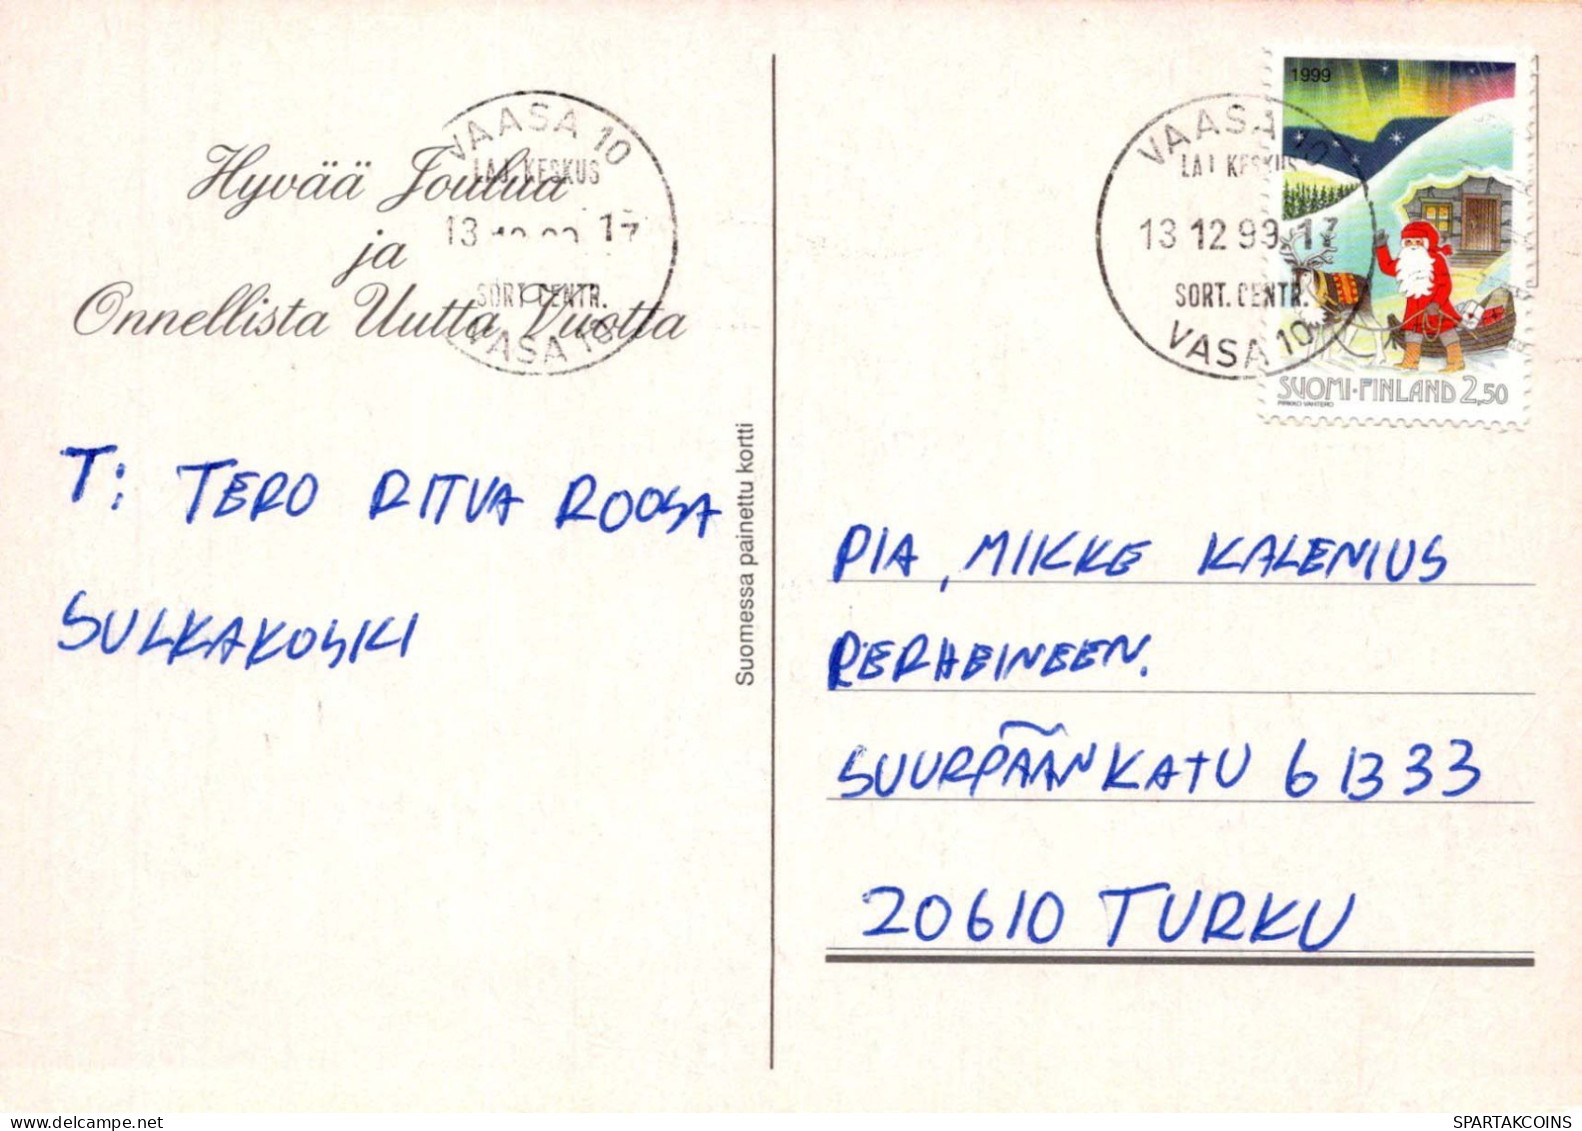 Hyvää Joulua
ja
Onnellista Uutta Vuotta
VAASA 10
LAJ. KESKUS
13 17
SORT. CENTR.
VASA 10
T: TERO RITVA ROOSA
SULKAKOSKI
Suomessa painettu kortti
VAASA 10
LAJ KESKUS
13 12 99. 17
SORT. CENTR.
VASA 10
1999
SUOMI·FINLAND 2,50
PIRKKO VAHTERO
PIA, MIKKE KALENIUS
PERHEINEEN.
SUURPÄÄNKATU 6 B 33
20610 TURKU
SPARTAKCOINS